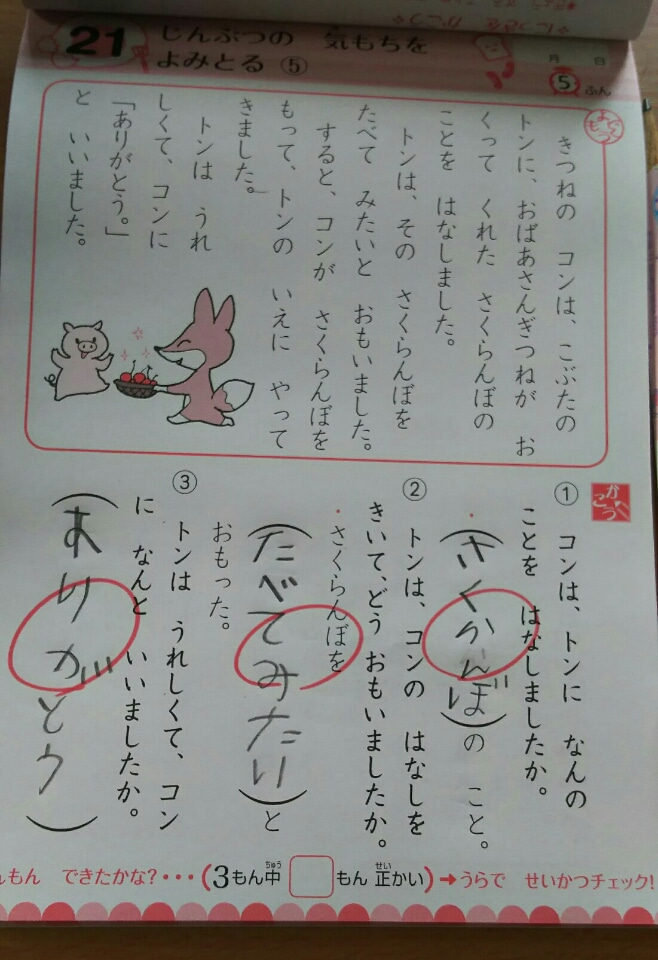 21
じんぶつの 気もちを
よみとる ⑤
月 日
5 ふん
きつねの コンは、こぶたの
トンに、おばあさんぎつねが お
くって くれた さくらんぼの
ことを はなしました。
トンは、その さくらんぼを
たべて みたいと おもいました。
すると、コンが さくらんぼを
もって、トンの いえに やって
きました。
トンは うれ
しくて、コンに
「ありがとう。」
と いいました。
① コンは、トンに なんの
ことを はなしましたか。
(さくらんぼ)の こと。
② トンは、コンの はなしを
きいて、どう おもいましたか。
・さくらんぼを
(たべてみたい)と
おもった。
③ トンは うれしくて、コン
に なんと いいましたか。
(ありがとう)
もん できたかな?・・・(3もん中 もん 正かい)→うらで せいかつチェック!